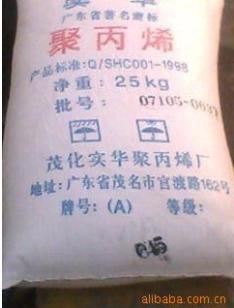 实华
广东省著名商标
聚丙烯
产品标准:Q/SHC001-1998
净重:25kg
批号:07105-0637
茂化实华聚丙烯厂
地址:广东省茂名市官渡路162号
牌号:(A) 等级:
阿里巴巴
alibaba.com.cn